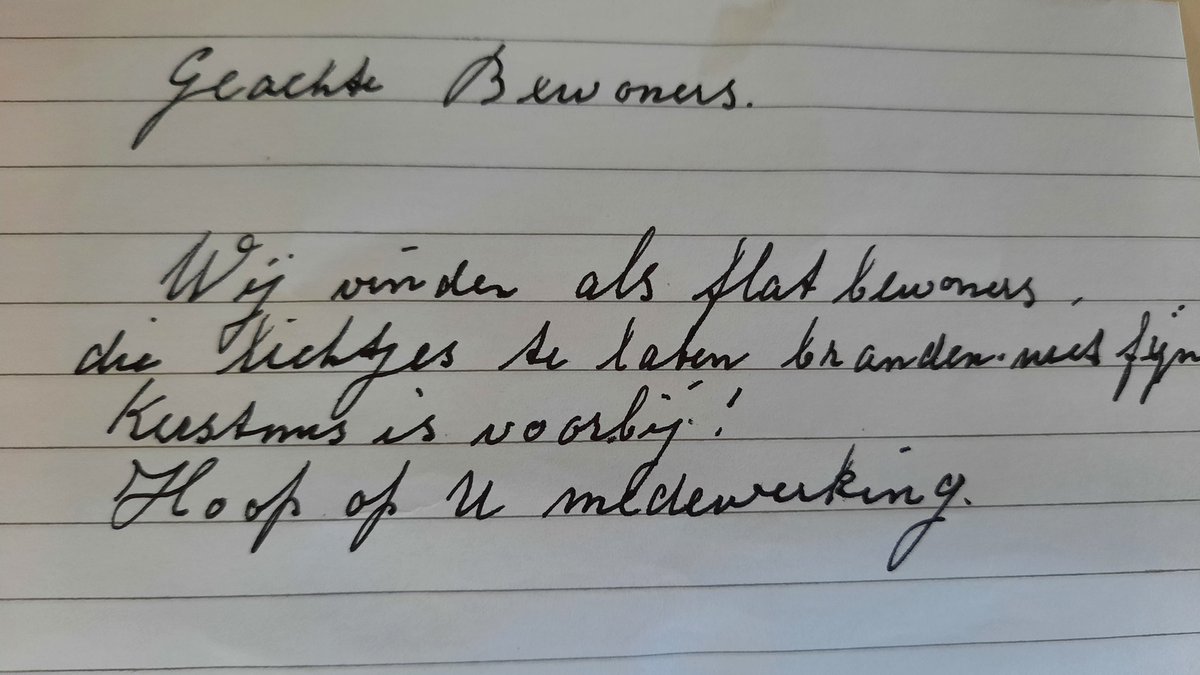 Geachte Bewoners.
Wij vinden als flat bewoners,
die lichtjes te laten branden niet fijn
Kerstmis is voorbij!
Hoop op U medewerking.